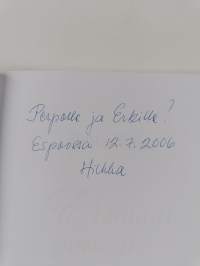 Perpolle ja Erkille!
Espoossa 12.7.2006
Hilkka